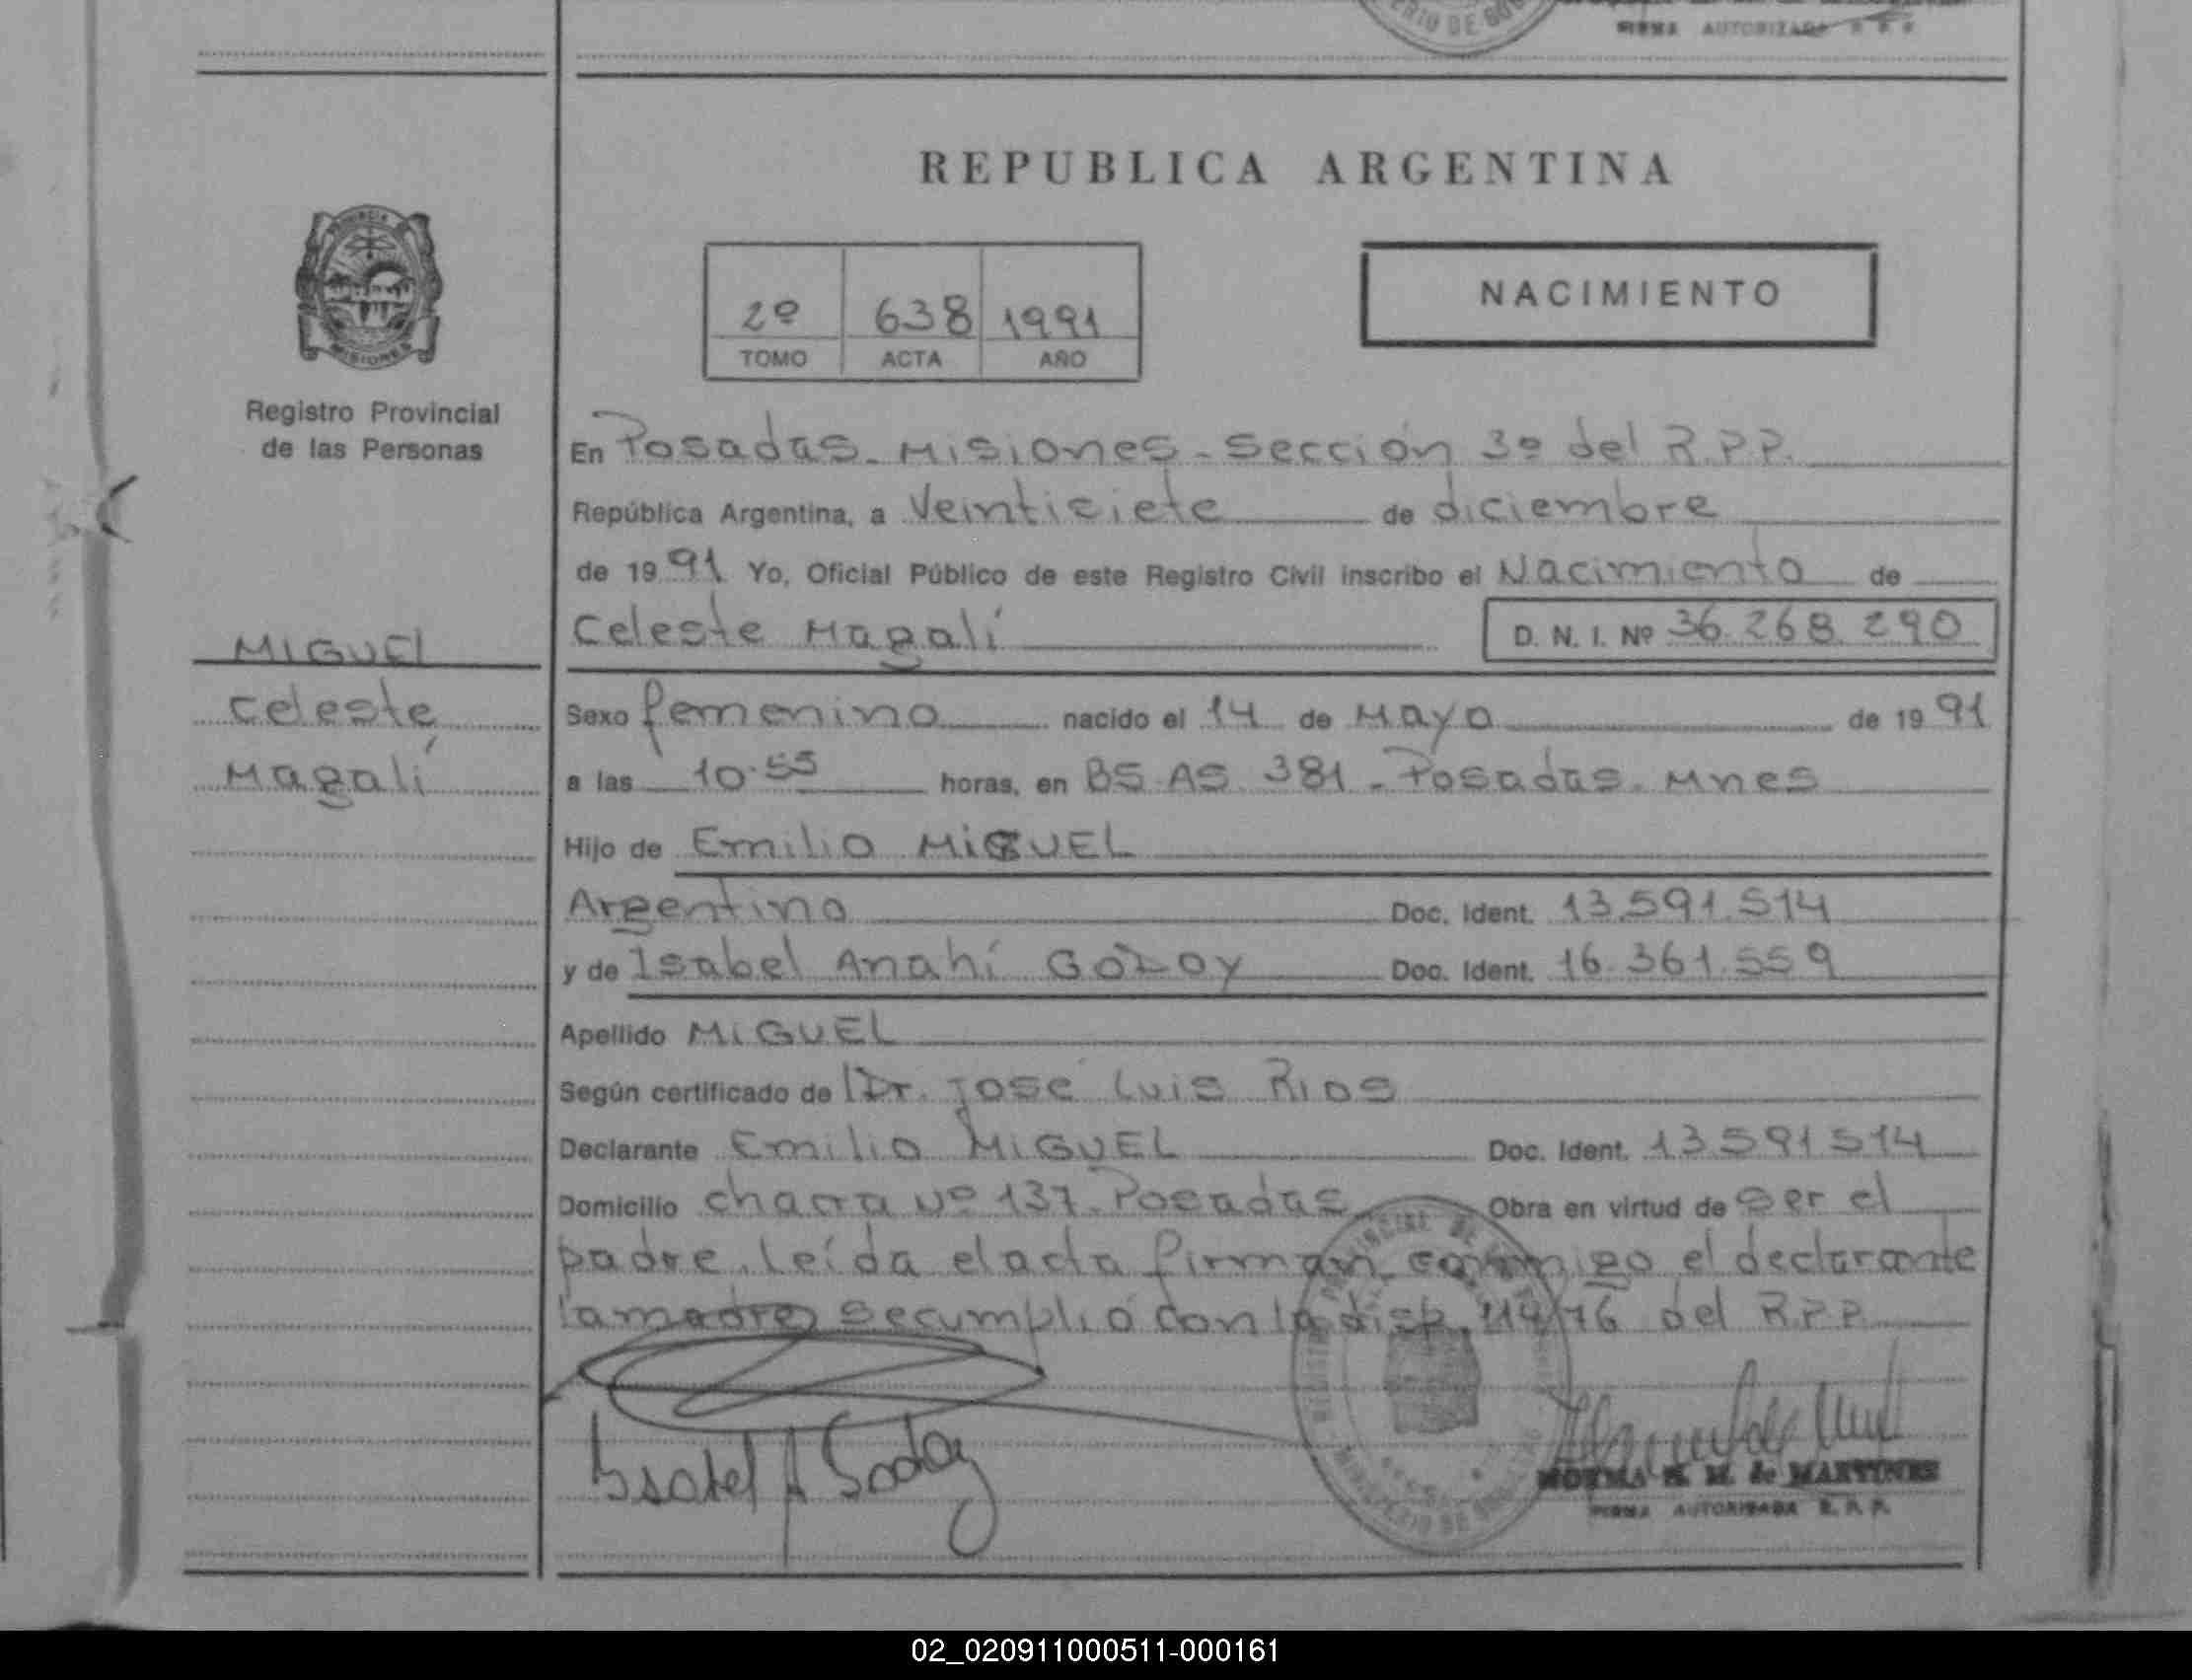 ERIO DE GOB
FIRMA AUTORIZADA R. P. P.
REPUBLICA ARGENTINA
PROVINCIA
MISIONES
Registro Provincial
de las Personas
2º 638 1991
TOMO ACTA AÑO
NACIMIENTO
En Posadas. Misiones. Sección 3º del R.P.P.
República Argentina, a Veintisiete de diciembre
de 1991 Yo, Oficial Público de este Registro Civil inscribo el Nacimiento de
Celeste Magalí D. N. I. Nº 36.268.290
MIGUEL
Celeste
Magalí
Sexo femenino nacido el 14 de Mayo de 1991
a las 10.55 horas, en BS.AS. 381 - Posadas. Mnes
Hijo de Emilio MIGUEL
Argentino Doc. Ident. 13.591.514
y de Isabel Anahí GODOY Doc. Ident. 16.361.559
Apellido MIGUEL
Según certificado de Dr. José Luis Rios
Declarante Emilio MIGUEL Doc. Ident. 13591514
Domicilio chacra Nº 137. Posadas Obra en virtud de ser el
padre. Leída el acta firman conmigo el declarante
la madre se cumplió con la disp. 114/76 del R.P.P.
Isabel A Godoy
NORMA H. M. de MARTINES
FIRMA AUTORIZADA R. P. P.
02_020911000511-000161